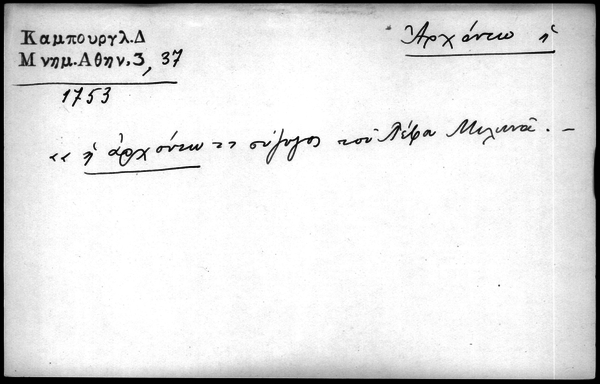 Καμπουργλ.Δ
Μνημ.Αθην.3, 37
1753
Ἀρχόντω ἡ
« ἡ ἀρχόντω » σύζυγος τοῦ Μιλινᾶ. –